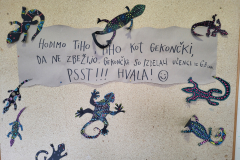 HODIMO TIHO, TIHO KOT GEKONČKI,
DA NE ZBEŽIJO. GEKONČKE SO IZDELALI UČENCI
PSST!!! HVALA! ☺